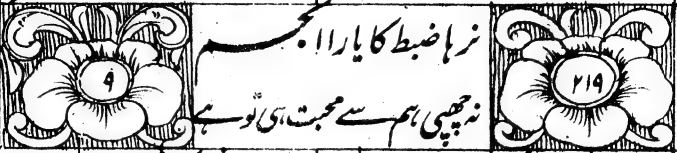 ۲۱۹
نہ رہا ضبط کا یارا انجم
نہ چھپی ہم سے محبت ہی تو ہے
۹